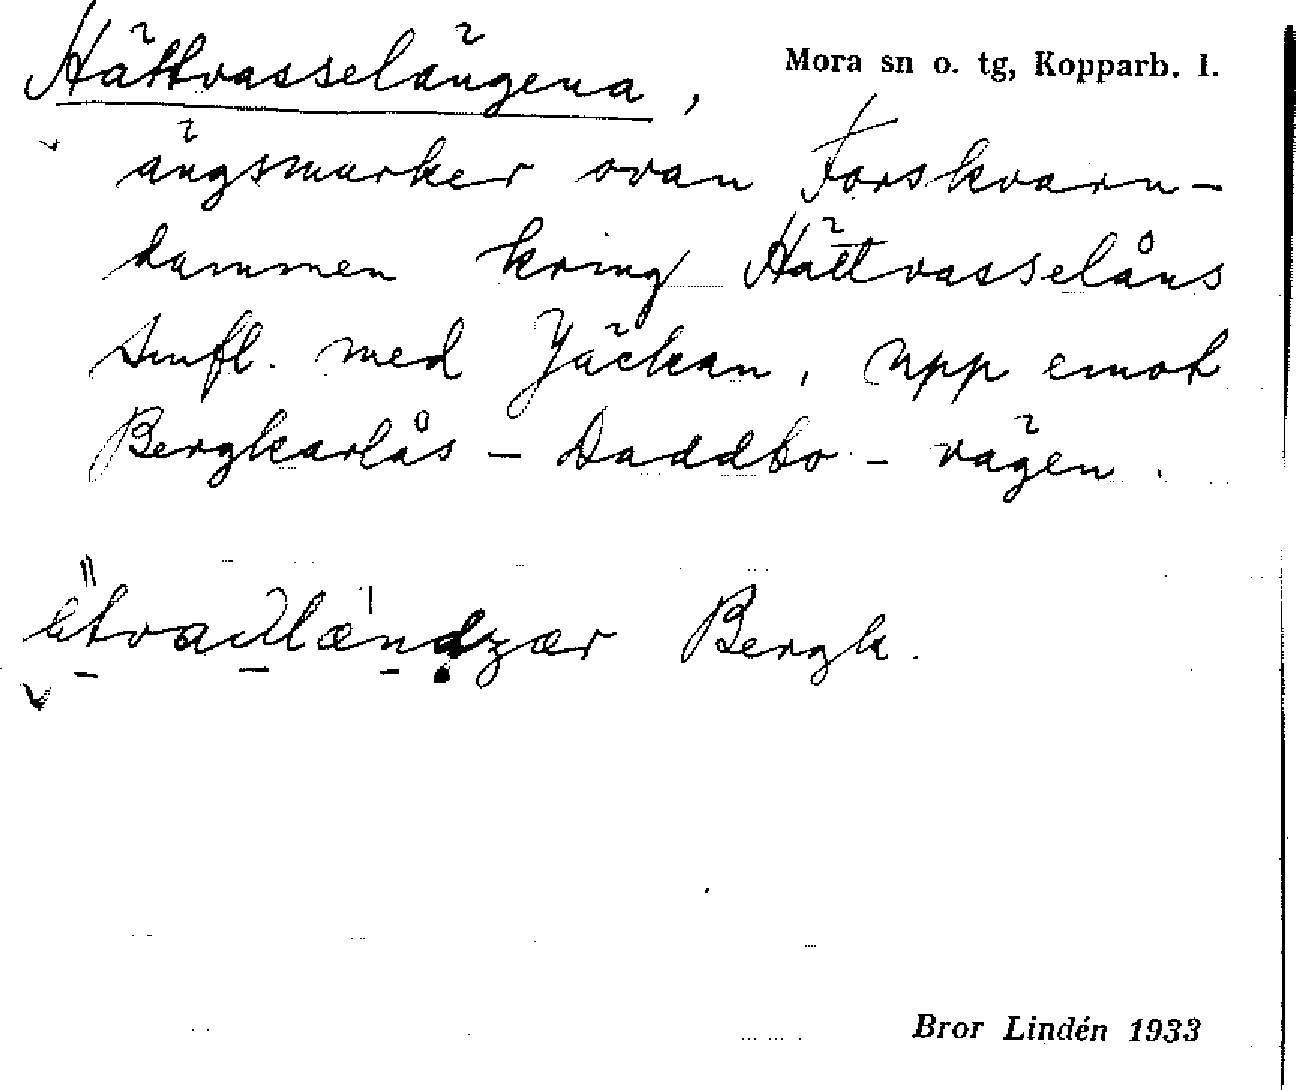 Hättvasselängena,
Mora sn o. tg, Kopparb. l.
ängsmarker ovan Forskvarn-
dammen kring Hättvasselåns
smfl. med Jäckan, upp emot
Bergkarlås - Daddbo - vägen.
Bergk.
Bror Lindén 1933